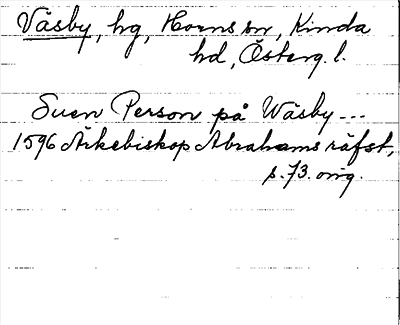 Väsby, hg, Horns sn, Kinda
hd, Österg l.
Suen Person på Wäsby ---
1596 Ärkebiskop Abrahams räfst,
s. 73. orig.